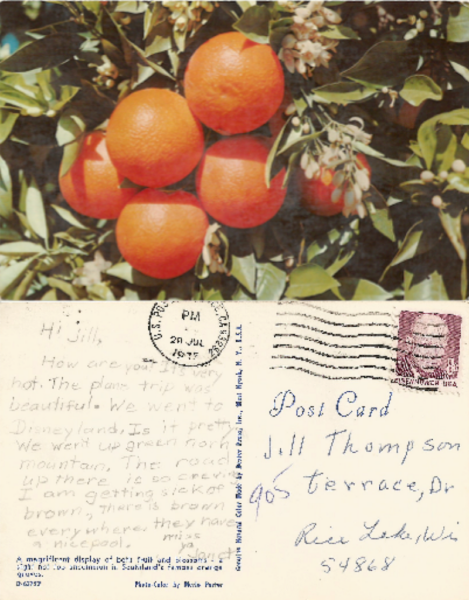 Hi Jill,
How are you? It's very
hot. The plane trip was
beautiful. We went to
Disneyland. Is it pretty.
We went up green horn
mountain. The road
up there is so
I am getting sick of
brown, There is brown
everywhere. they have
a nice pool. miss
ya
Janet
A magnificent display of both fruit and blossoms - a
sight not too uncommon in Southland's famous orange
groves.
Photo-Color by Mario Porter
U.S. POSTAL
PM
29 JUL
197
EISENHOWER USA
Post Card
Jill Thompson
905 terrace, Dr
Rice Lake, Wis
54868